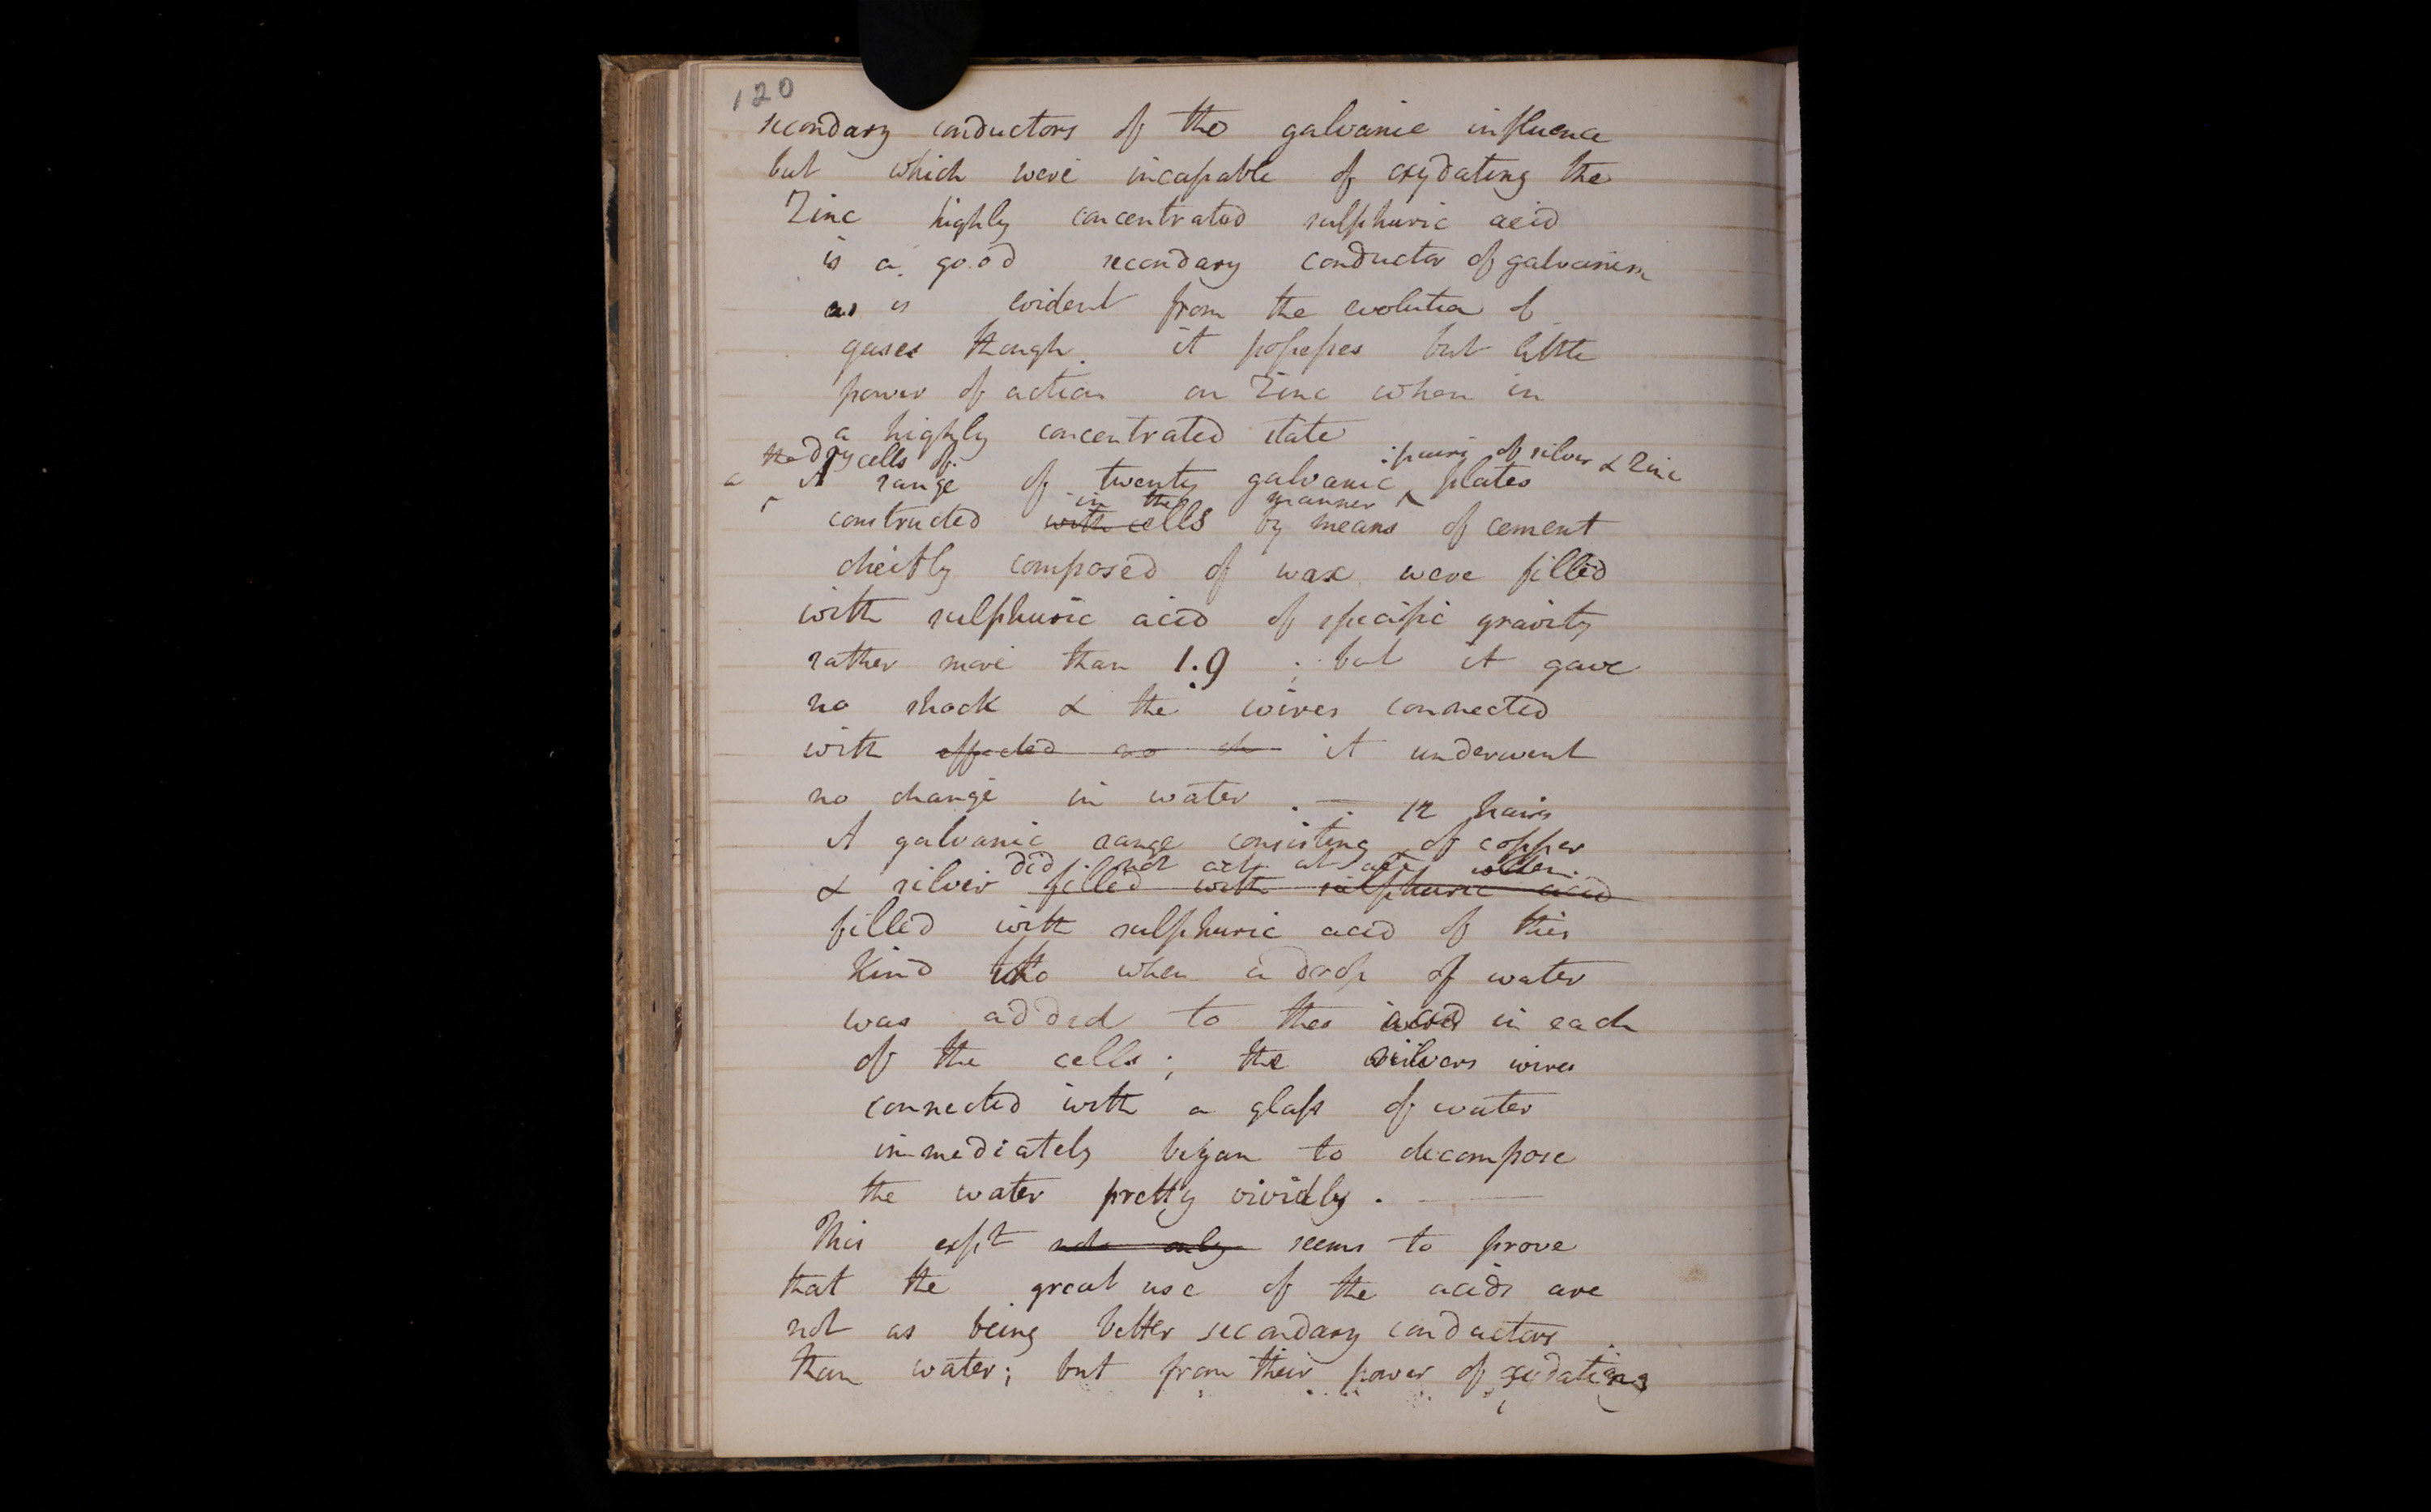 120
secondary conductors of the galvanic influence
but which were incapable of oxydating the
Zinc highly concentrated sulphuric acid
is a good secondary conductor of galvanism
as is evident from the evolution of
gases though it possesses but little
power of action on Zinc when in
a highly concentrated state
the dry cells of
pairs of silver & Zinc
A range of twenty galvanic plates
in the manner
constructed with cells by means of cement
cheifly composed of wax were filled
with sulphuric acid of specific gravity
rather more than 1.9 ; but it gave
no shock & the wires connected
with effected no ch it underwent
no change in water . —
12 pairs
A galvanic range consisting of copper
did not act at all when
& silver filled with sulphuric acid
filled with sulphuric acid of this
Kind when a drop of water
was added to the acid in each
of the cells ; the silver wires
connected with a glass of water
immediately began to decompose
the water pretty vividly . —
This expt not only seems to prove
that the great use of the acids are
not as being better secondary conductors
than water; but from their power of oxydating